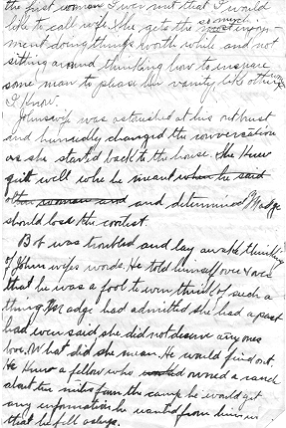 the first woman I ever met that I would
like to call wife. She gets the so much most enjoy-
ment doing things worth while and not
sitting around thinking how to ensnare
some man to please her vanity like other women
I know.
Johns wife was astonished at this outburst
and hurriedly changed the conversation
as she started back to the house. She knew
quit well who he meant when he said
other woman and and determined Madge
should lose the contest.
Bob was troubled and lay awake thinking
of Johns wifes words. He told himself over & over
that he was a fool to even think of such a
thing Madge had admitted she had a past
had even said she did not deserve any ones
love. What did she mean. He would find out.
He knew a fellow who owned a ranch
about ten miles from the camp he would get
any information he wanted from him
that he fell asleep.